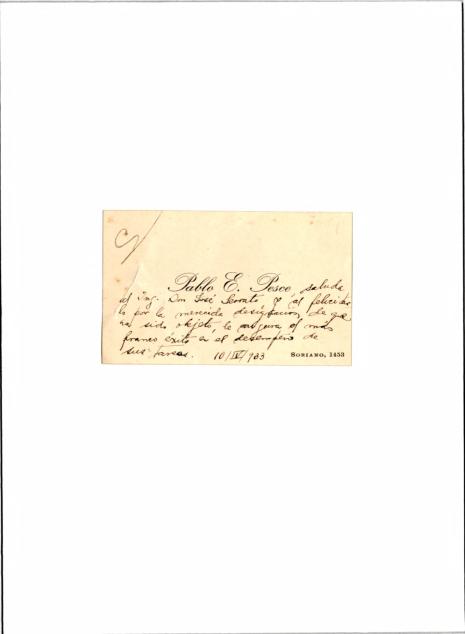 Pablo E. Pesce, saluda
al Ing. Don José Serrato, y al felicitar
lo por la merecida designacion, de que
ha sido objeto, le augura el más
franco éxito en el desempeño de
sus tareas. 10/IV/933
SORIANO, 1453